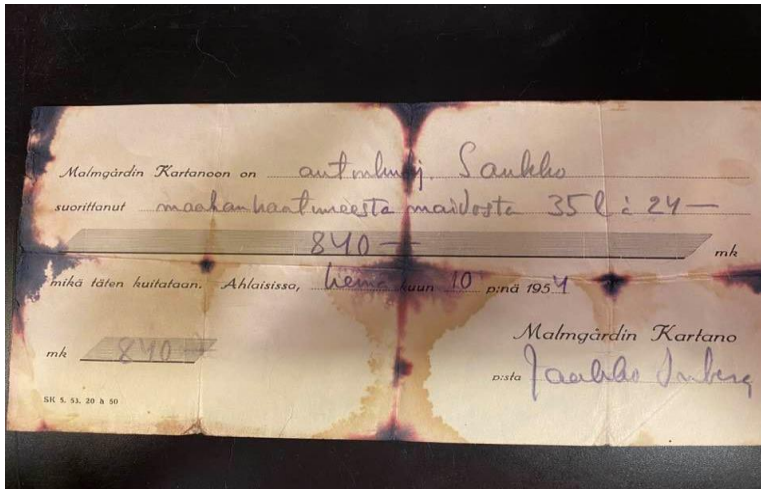 Malmgårdin Kartanoon on autonkulj. Saukko
suorittanut maahankaatuneesta maidosta 35 l à 24 —
840 — mk
mikä täten kuitataan. Ahlaisissa, heinä kuun 10 p:nä 1954
Malmgårdin Kartano
mk 840 —
p:sta Jaakko
SK 5. 53. 20 à 50